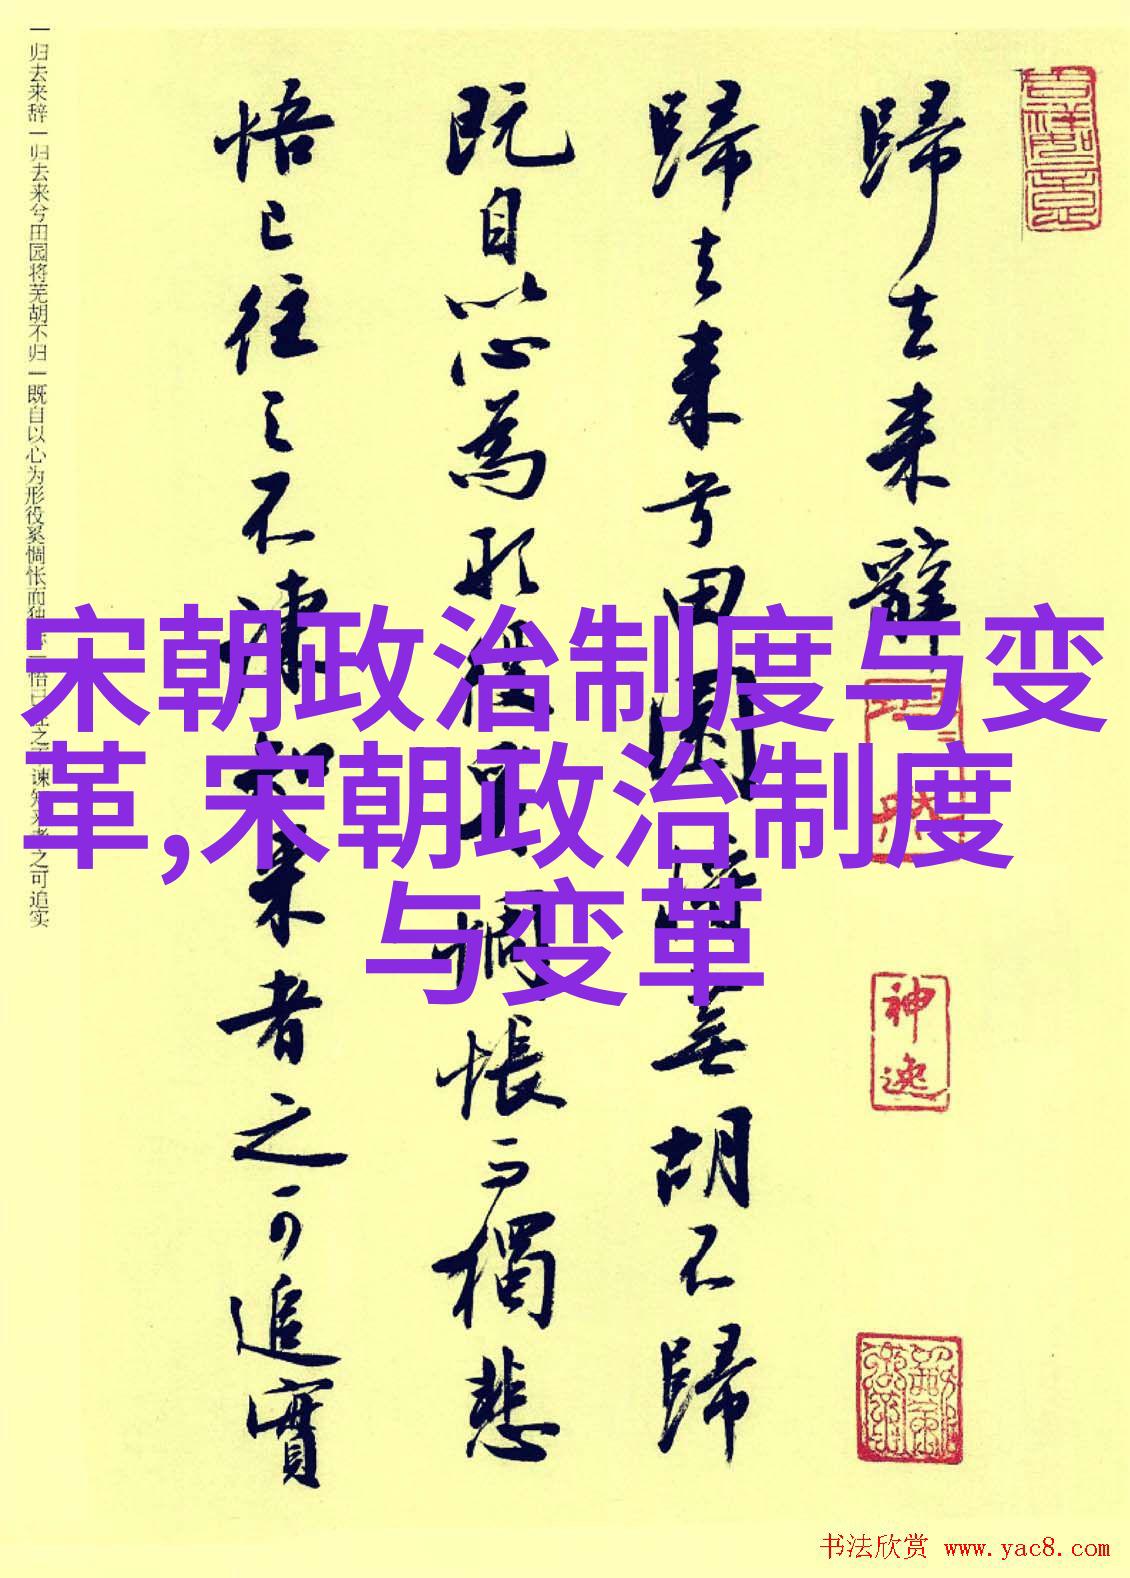 歸去来辭
歸去来兮田園將蕪胡不歸
既自以心為形役奚惆悵而獨悲
悟已往之不諫知来者之可追實
神逸
一归去来辞一归去来兮田园将芜胡不归一既自以心为形役奚惆怅而独悲一悟已往之不谏知来者之可追实
宋朝政治制度与变
革,宋朝政治制度
与变革
书法欣赏 www.yac8.com